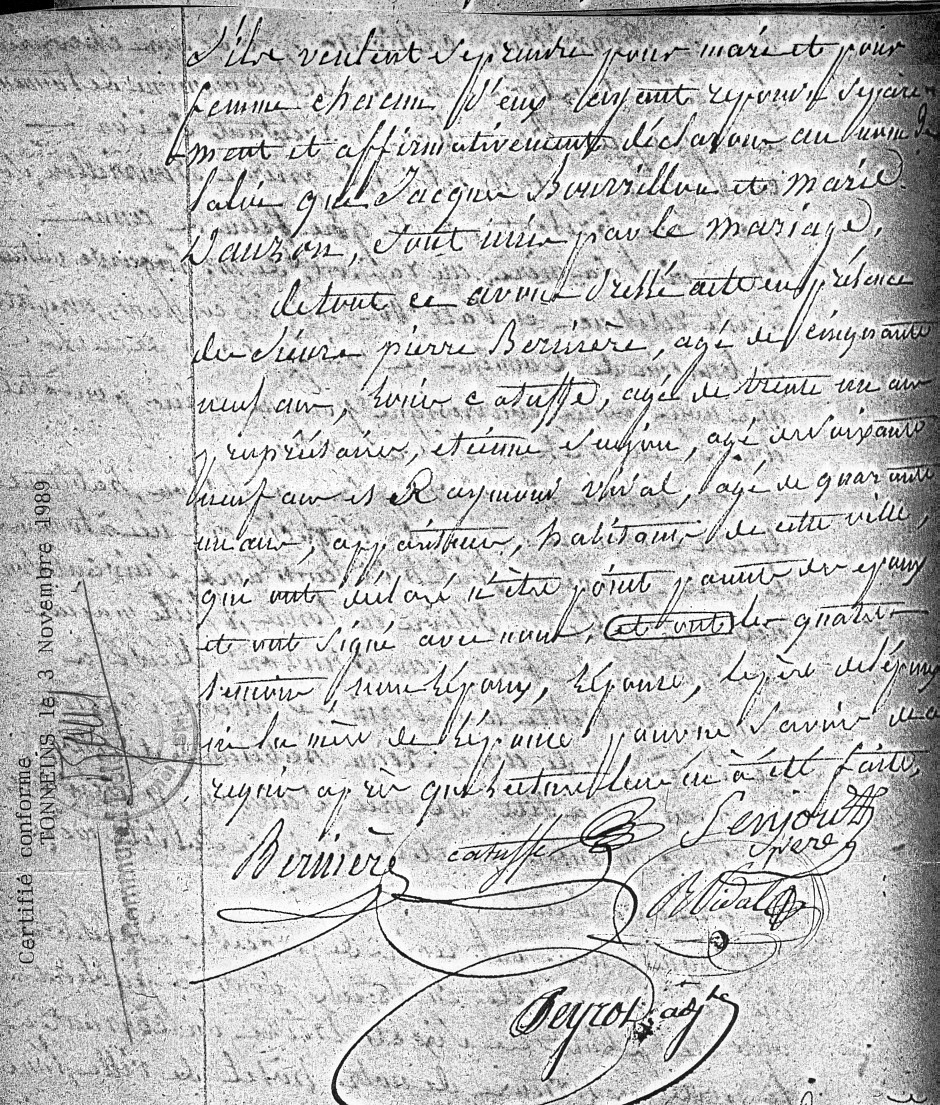 S'ils veulent se prendre pour mari et pour
femme chacun d'eux ayant repondu separe-
ment et affirmativement déclarons au nom de
la loi que Jacques Bourrillon et Marie
Dauzon, sont unis par le mariage,
de tout ce avons dressé acte en présence
des sieurs pierre Bernière, agé de cinquante
neuf ans, catuffe, agé de trente un ans
propriétaires, etienne senjou, agé de soixante
neuf ans et Raymond vidal, agé de quarante
un ans, appariteur, habitans de cette ville,
qui ont declaré n'être point parents des epoux
et ont signé avec nous, et ont les quatre
temoins, non l'époux, l'épouse, le père de l'époux
ni la mère de l'épouse pour ne savoir de ce
requis après que lecture leur en à été faite,
Bernière catuffe Senjou
père
R Vidal
Peyro adjt
Certifié conforme
TONNEINS le 3 Novembre 1989